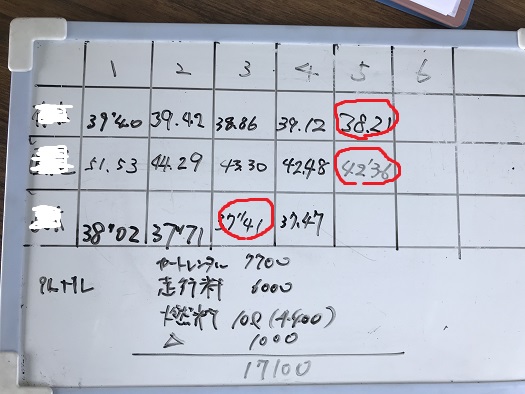 1 2 3 4 5 6
39"40 39.42 38.86 39.12 38.21
51.53 44.29 43.30 42.48 42'36
38"02 37"71 37"41 37.47
カートレンタル 7700
走行料 4000
燃料 10ℓ(4400)
1000
17100